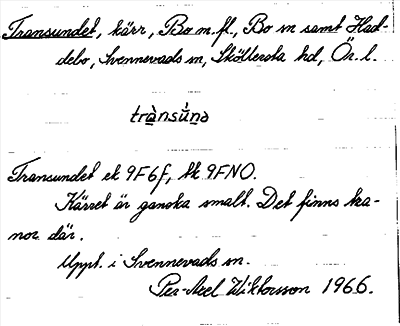 Transundet, kärr, Bo m. fl., Bo sn samt Had-
debo, Svennevads sn, Sköllersta hd, Ör. l.
Transundet ek 9F6f, tk 9FNO.
Kärret är ganska smalt. Det finns tra-
nor där.
Uppt. i Svennevads sn.
Per-Axel Wiktorsson 1966.